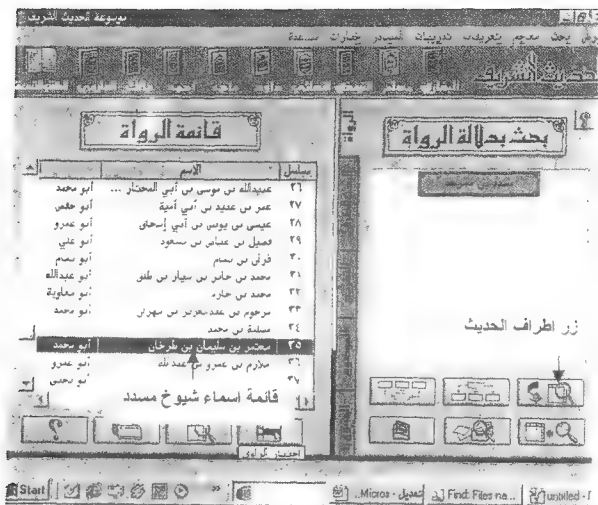 موسوعة الحديث الشريف
عرض بحث معجم تعريفات تدريبات المصادر خيارات مساعدة
الحديث الشريف
قائمة الرواة
بحث بدلالة الرواة
الرواة
مسلسل الاسم
٢٦ عبيدالله بن موسى بن أبي المختار ... أبو محمد
٢٧ عمر بن عبيد بن أبي أمية أبو حفص
٢٨ عيسى بن يونس بن أبي إسحاق أبو عمرو
٢٩ فضيل بن عياض بن مسعود أبو علي
٣٠ قران بن تمام أبو تمام
٣١ محمد بن جابر بن سيار بن طلق أبو عبدالله
٣٢ محمد بن خازم أبو معاوية
٣٣ مرحوم بن عبدالعزيز بن مهران أبو محمد
٣٤ مسلمة بن محمد
٣٥ معتمر بن سليمان بن طرخان أبو محمد
٣٦ ملازم بن عمرو بن عبدالله أبو عمرو
٣٧ أبو يحيى
زر اطراف الحديث
قائمة أسماء شيوخ مسدد
اختيار الراوي
Start
Micros - تعديل
Find: Files na...
untitled - P